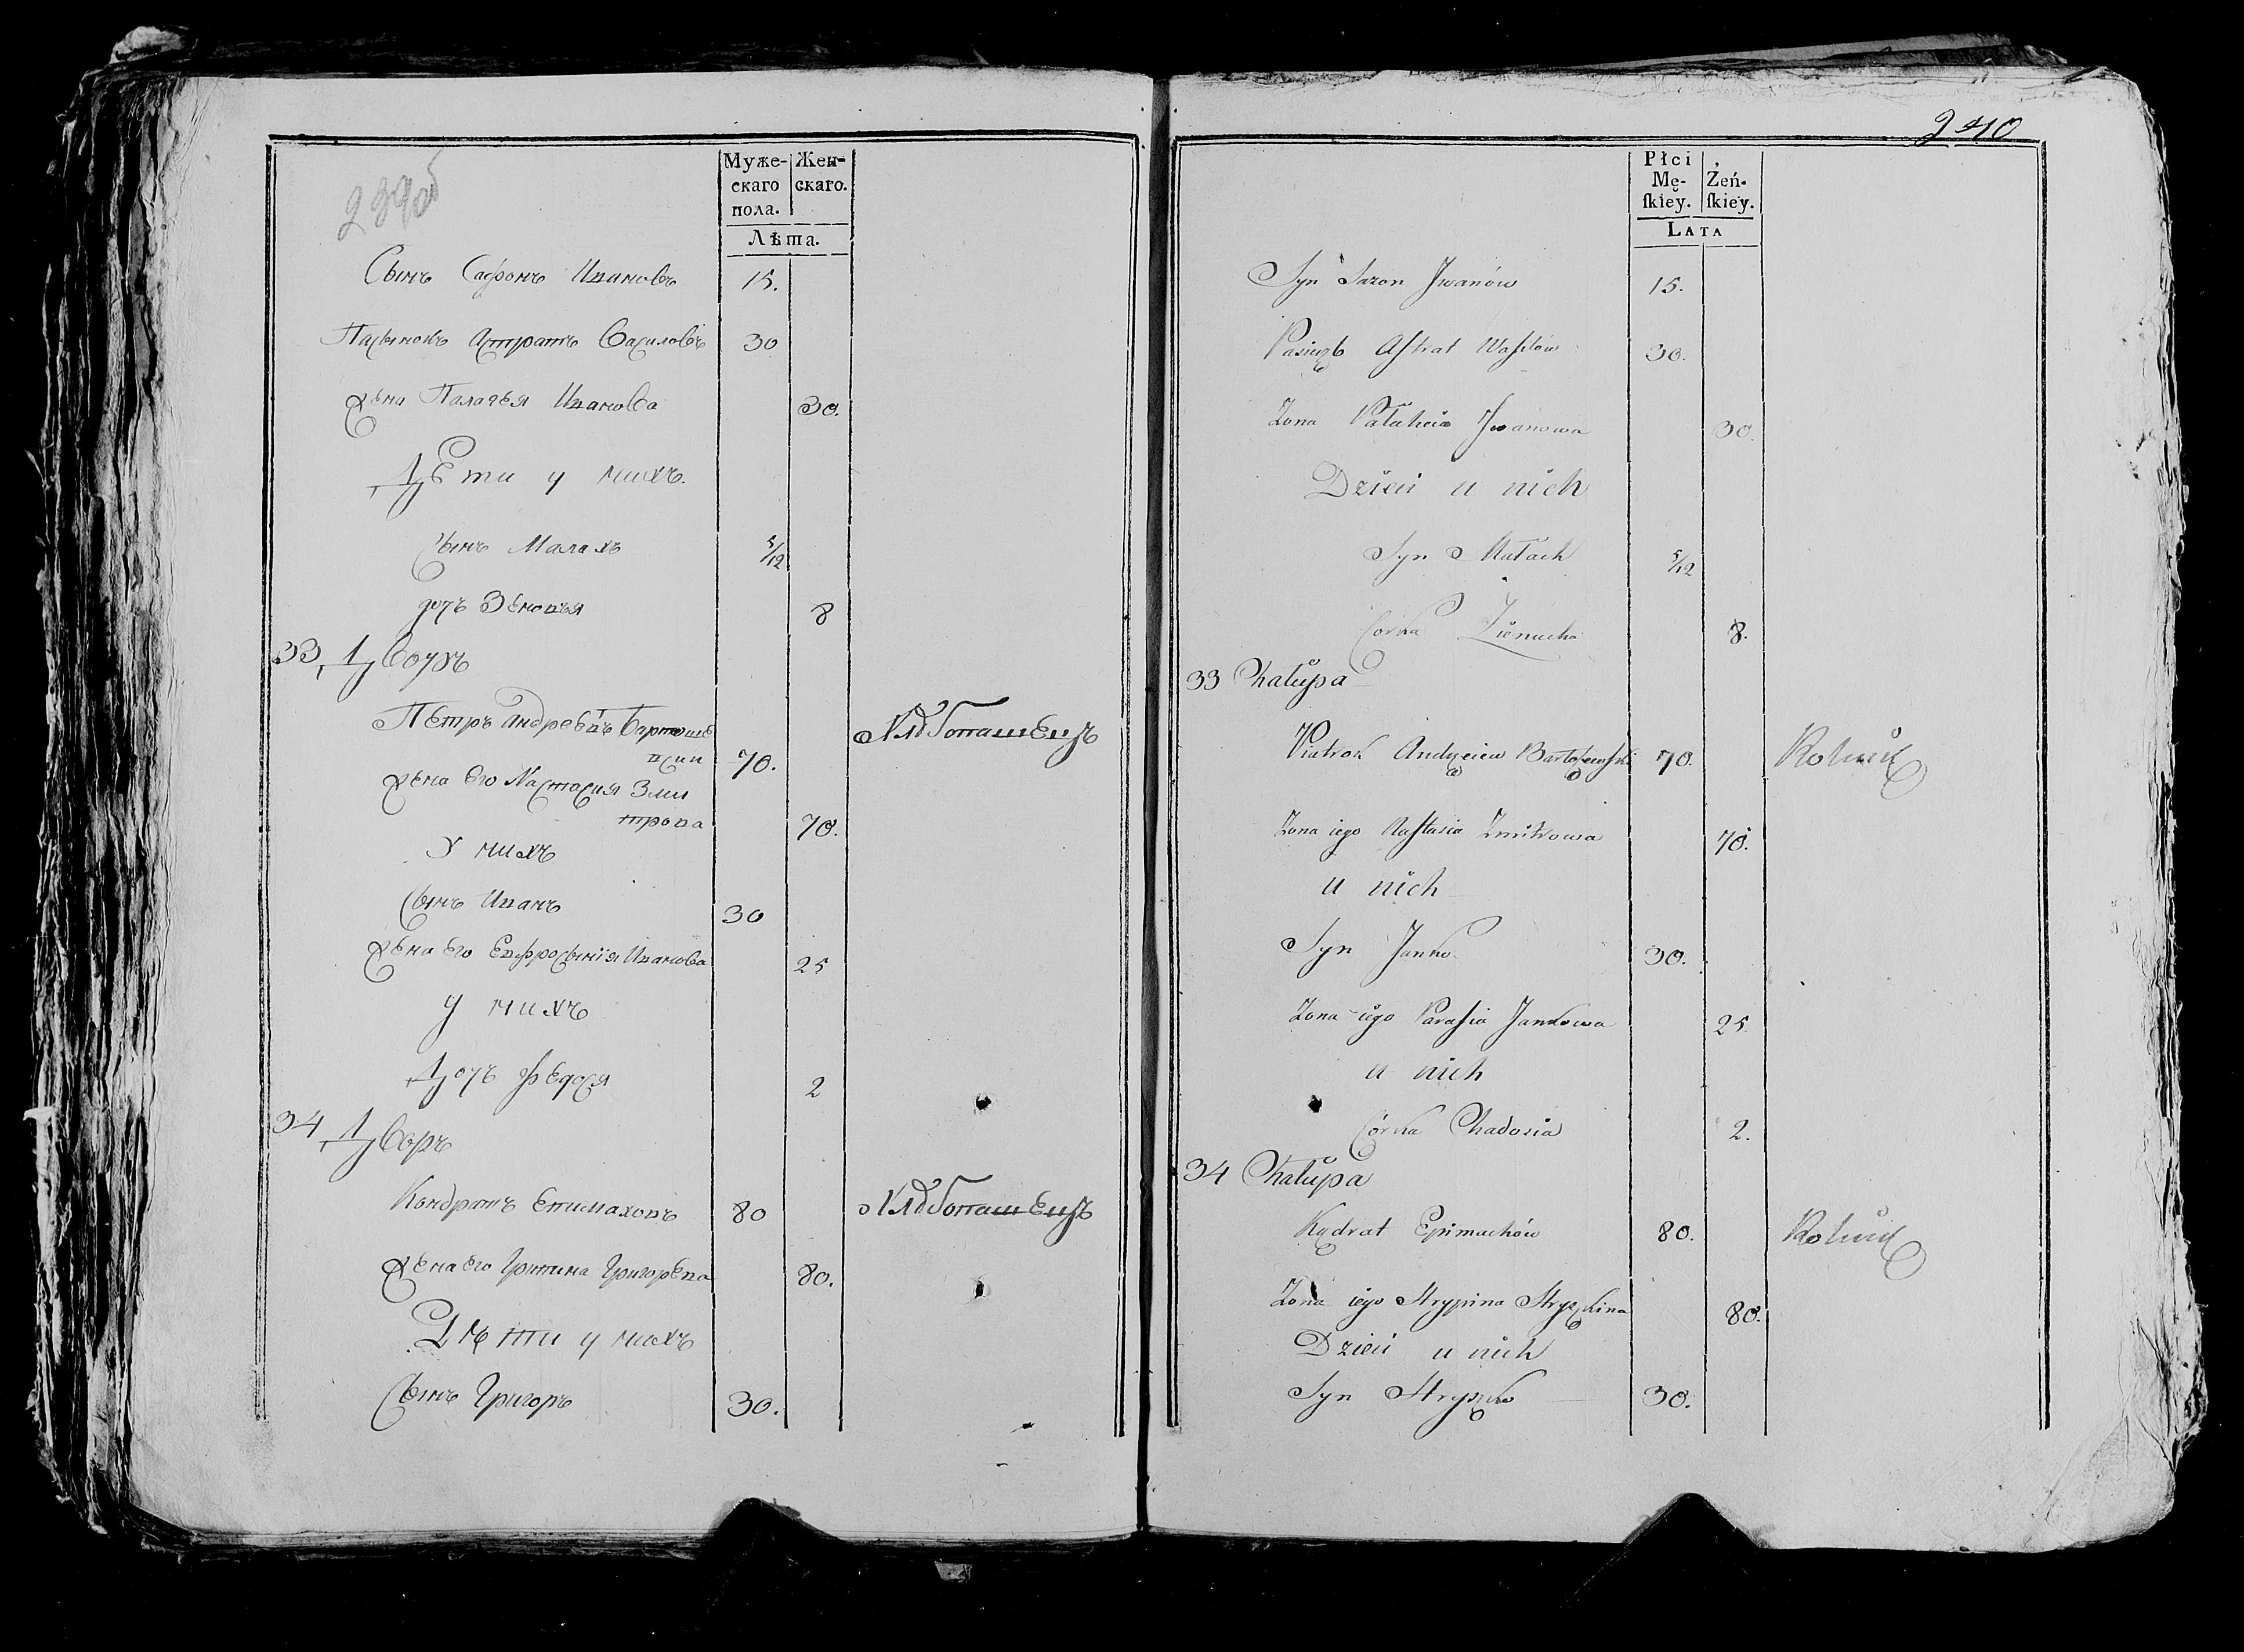 239об
Муже-
скаго
пола.
Жен-
скаго.
Лѣта.
Сынъ Сафронъ Ивановъ 15.
Пасынокъ Астратъ Василовъ 30
Жена Палагея Иванова 30.
Дѣти у нихъ.
Сынъ Малахъ 5/12
дочь Зеновья 8
33 Дворъ
Петръ Андреевъ Бартоше
вски 70. Хлѣбопашецъ
Жена Его Настасия Зми
трова 70.
У нихъ
Сынъ Иванъ 30
Жена Его Евфросынiя Иванова 25
у нихъ
Дочь Федося 2
34 Дворъ
Кондратъ Епимаховъ 80 Хлѣбопашецъ
Жена Его Грипина Григорева 80.
Дѣти у нихъ
Сынъ Григоръ 30.
240
Płci
Mę-
skiey.
Żeń-
skiey.
LATA
Syn Sazon Jwanów 15.
Pasierzb Astrat Wasilów 30.
Zona Pałaheia Jwanowa 30.
Dzieci u nich
Syn Małach 5/12
Corka Zienucha 8.
33 Chałupa
Piatrok Andrzeiew Bartoszewski 70. Rolnik
Zona iego Nastasia Zmitrowa 70.
u nich
Syn Janko 30.
Zona iego Parasia Jankowa 25.
u nich
Córka Chadosia 2.
34 Chałupa
Kądrat Epimachów 80. Rolnik
Zona iego Hrypina Hryszkina 80.
Dzieci u nich
Syn Hryszko 30.